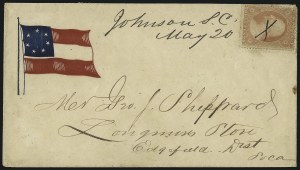 Johnson S.C.
May 20
X
Mr Geo. J. Sheppard
Longmires Store
Edgefield Dist
So Ca